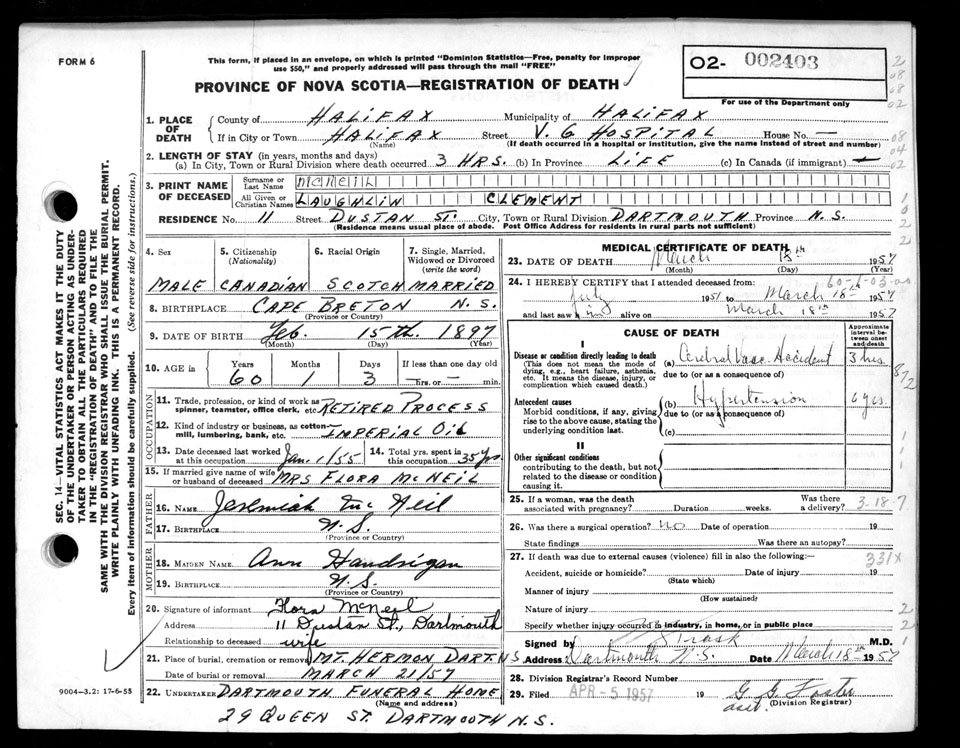 FORM 6
This form, if placed in an envelope, on which is printed "Dominion Statistics—Free, penalty for improper
use $50," and properly addressed will pass through the mail "FREE"
PROVINCE OF NOVA SCOTIA—REGISTRATION OF DEATH
O2- 002403
For use of the Department only
1. PLACE OF DEATH
County of HALIFAX Municipality of HALIFAX
If in City or Town HALIFAX Street V. G HOSPITAL House No. —
(Name) (If death occurred in a hospital or institution, give the name instead of street and number)
2. LENGTH OF STAY (in years, months and days)
(a) In City, Town or Rural Division where death occurred 3 HRS. (b) In Province LIFE (c) In Canada (if immigrant) —
3. PRINT NAME OF DECEASED
Surname or Last Name MCNEIL
All Given or Christian Names LAUGHLIN CLEMENT
RESIDENCE No. 11 Street DUSTAN ST. City, Town or Rural Division DARTMOUTH Province N.S.
(Residence means usual place of abode. Post Office Address for residents in rural parts not sufficient)
4. Sex 5. Citizenship (Nationality) 6. Racial Origin 7. Single, Married, Widowed or Divorced (write the word)
MALE CANADIAN SCOTCH MARRIED
8. BIRTHPLACE CAPE BRETON N.S.
(Province or Country)
9. DATE OF BIRTH Feb. 15th. 1897
(Month) (Day) (Year)
10. AGE in Years Months Days If less than one day old
60 1 3 — hrs. or — min.
OCCUPATION
11. Trade, profession, or kind of work as
spinner, teamster, office clerk, etc. RETIRED PROCESS
12. Kind of industry or business, as cotton-
mill, lumbering, bank, etc. IMPERIAL OIL
13. Date deceased last worked at this occupation Jan. 1/55 14. Total yrs. spent in this occupation 35 yrs.
15. If married give name of wife or husband of deceased MRS FLORA MCNEIL
FATHER
16. NAME Jeremiah Mc Neil
17. BIRTHPLACE N.S.
(Province or Country)
MOTHER
18. MAIDEN NAME Ann Handrigan
19. BIRTHPLACE N.S.
(Province or Country)
20. Signature of informant Flora McNeil
Address 11 Dustan St., Dartmouth
Relationship to deceased wife
21. Place of burial, cremation or removal MT. HERMON DART. NS
Date of burial or removal MARCH 21/57
22. UNDERTAKER DARTMOUTH FUNERAL HOME
(Name and address)
29 QUEEN ST. DARTMOUTH N.S.
9004-3.2: 17-6-55
SEC. 14—VITAL STATISTICS ACT MAKES IT THE DUTY
OF THE UNDERTAKER OR PERSON ACTING AS UNDER-
TAKER TO OBTAIN ALL THE PARTICULARS REQUIRED
IN THE "REGISTRATION OF DEATH" AND TO FILE THE
SAME WITH THE DIVISION REGISTRAR WHO SHALL ISSUE THE BURIAL PERMIT.
WRITE PLAINLY WITH UNFADING INK. THIS IS A PERMANENT RECORD.
Every item of information should be carefully supplied. (See reverse side for instructions.)
MEDICAL CERTIFICATE OF DEATH
23. DATE OF DEATH March 18th 1957
(Month) (Day) (Year)
24. I HEREBY CERTIFY that I attended deceased from:
July 1951 to March 18th 1957
and last saw him alive on March 18th 1957
CAUSE OF DEATH
Approximate interval between onset and death
I
Disease or condition directly leading to death
(This does not mean the mode of
dying, e.g., heart failure, asthenia,
etc. It means the disease, injury, or
complication which caused death.)
(a) Cerebral Vasc. Accident 3 hrs.
due to (or as a consequence of)
Antecedent causes
Morbid conditions, if any, giving
rise to the above cause, stating the
underlying condition last.
(b) Hypertension 6 yrs.
due to (or as a consequence of)
(c)
II
Other significant conditions
contributing to the death, but not
related to the disease or condition
causing it.
25. If a woman, was the death associated with pregnancy? Duration weeks. Was there a delivery? 3-18-7
26. Was there a surgical operation? NO Date of operation 19
State findings Was there an autopsy?
27. If death was due to external causes (violence) fill in also the following: 331X
Accident, suicide or homicide? Date of injury 19
(State which)
Manner of injury
(How sustained)
Nature of injury
Specify whether injury occurred in industry, in home, or in public place
Signed by Trask M.D.
Address Dartmouth N.S. Date March 18th 1957
28. Division Registrar's Record Number
29. Filed APR - 5 1957 19 G. G. Foster
asst. (Division Registrar)